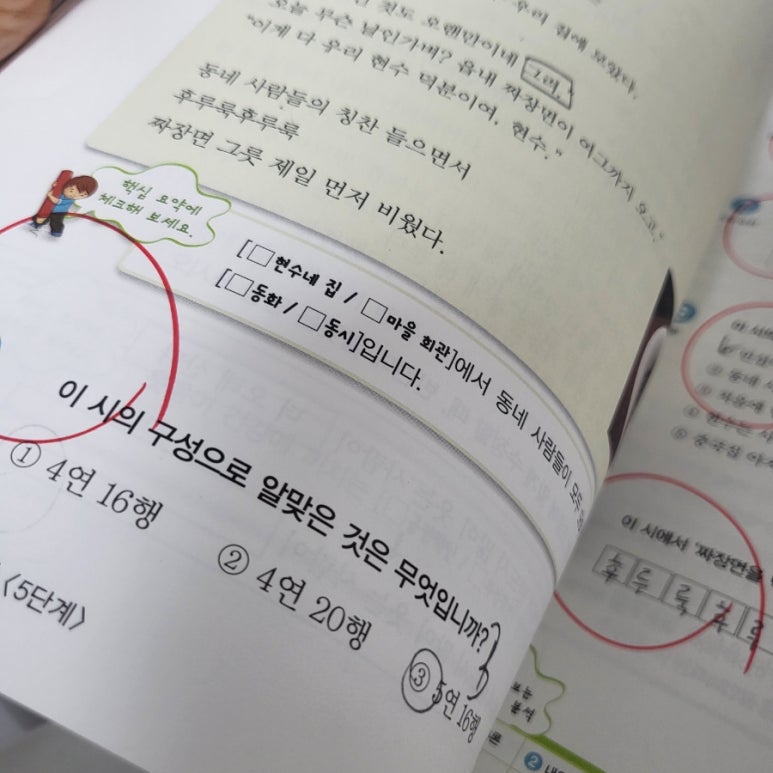 우리 집에 모였다.
것도 오랜만이네 그려,
오늘 무슨 날인가벼? 읍내 짜장면이 여그까지 오고."
"이게 다 우리 현수 덕분이여, 현수."
동네 사람들의 칭찬 들으면서
후루룩후루룩
짜장면 그릇 제일 먼저 비웠다.
핵심 요약에
체크해 보세요.
[□현수네 집 / □마을 회관]에서 동네 사람들이 모두
[□동화 / □동시]입니다.
이 시의 구성으로 알맞은 것은 무엇입니까? 3
① 4연 16행
② 4연 20행
③ 5연 16행
〈5단계〉
이 시에서 '짜장면을
후 루 룩 후 루